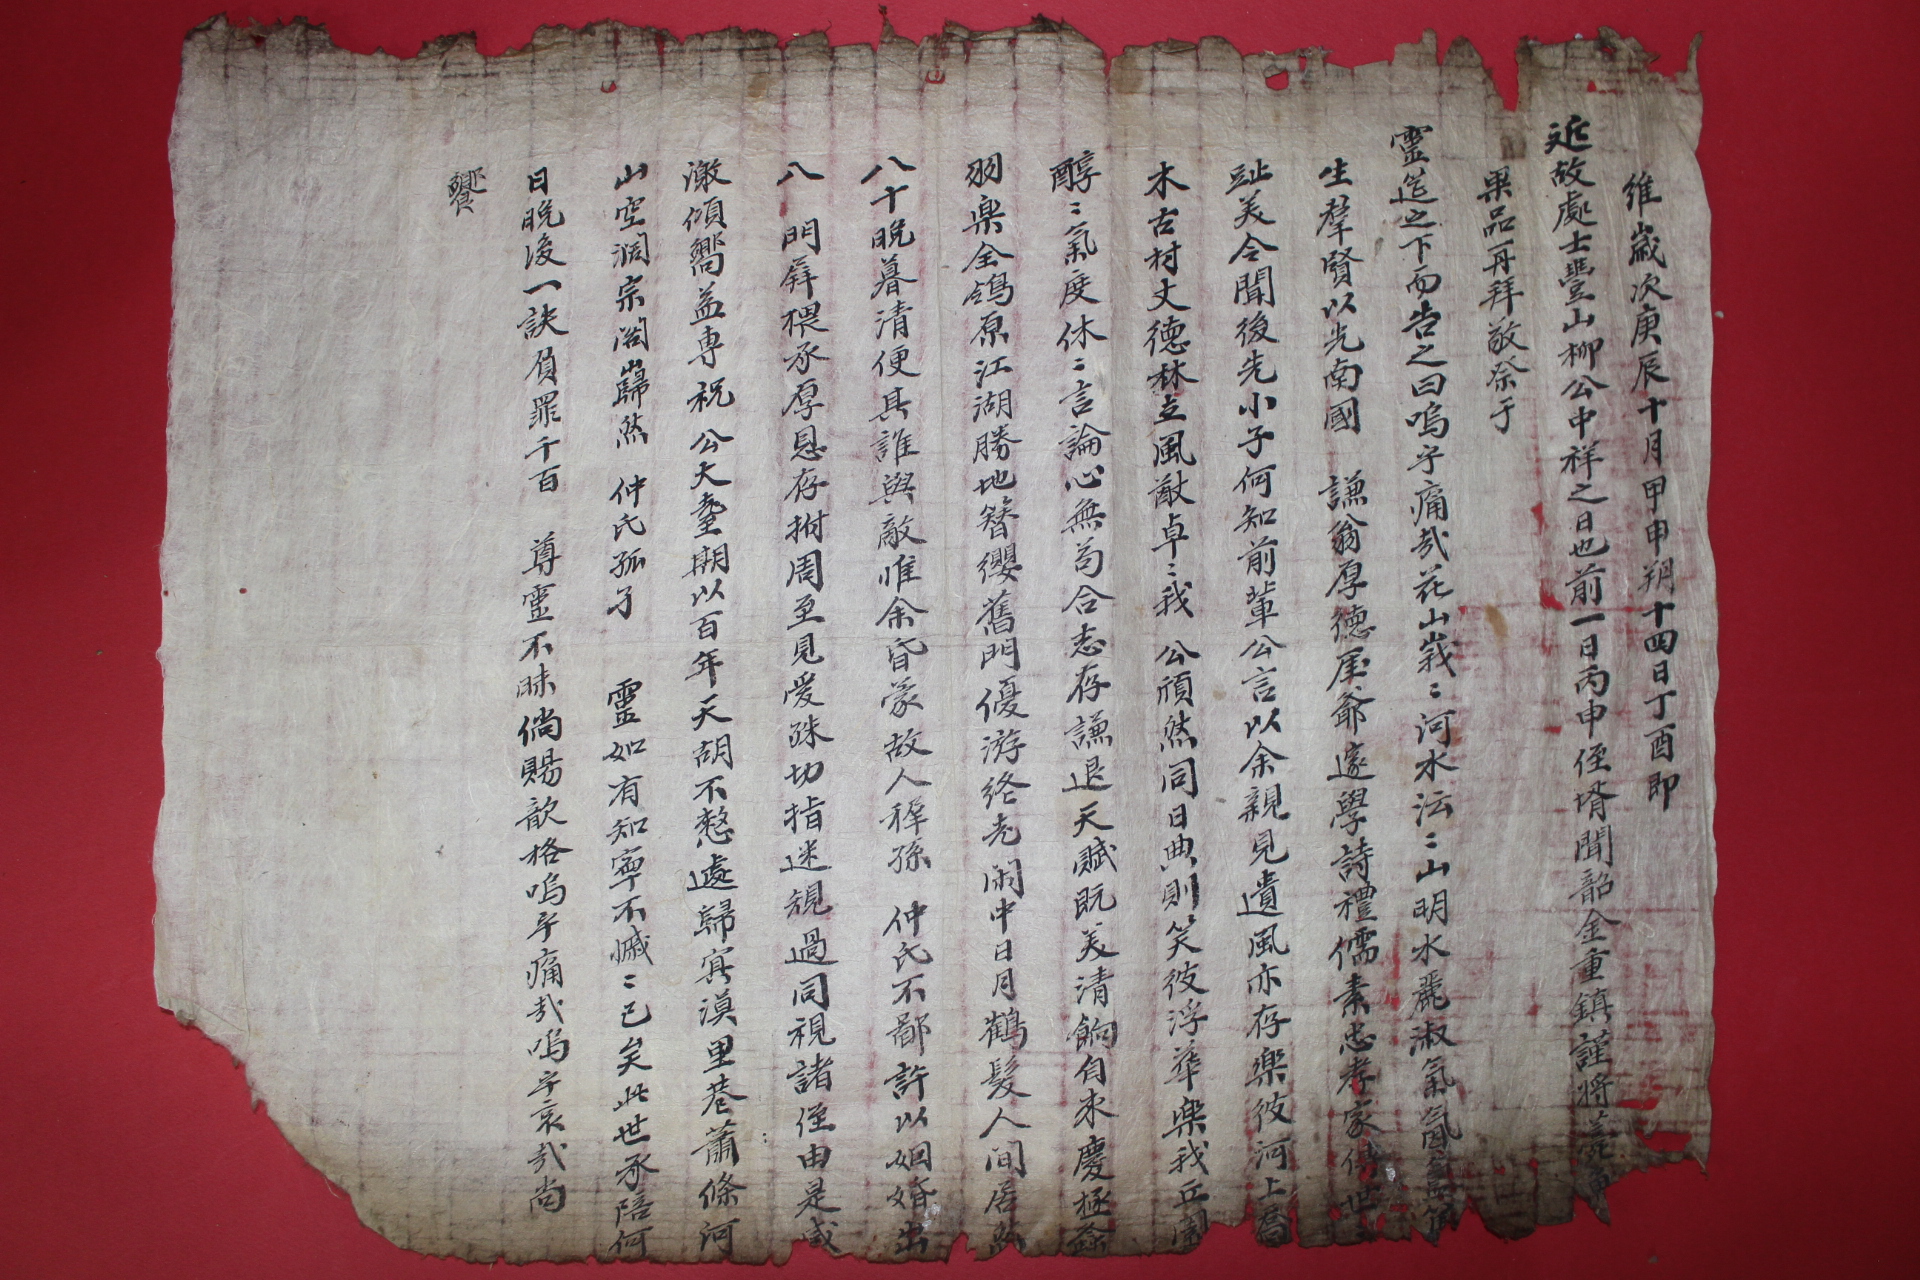 維歲次庚辰十月甲申朔十四日丁酉卽
近故處士豊山柳公中祥之日也前一日丙申侄壻聞韶金重鎭謹將
果品再拜敬祭于
靈筵之下而告之曰嗚乎痛哉花山峩〻河水沄〻山明水麗淑氣氤氳
生羣賢以光南國 謙翁厚德屋爺邃學詩禮儒素忠孝家傳世
趾美令聞後先小子何知前輩公言以余親見遺風亦存樂彼河上喬
木古村丈德林立風猷卓〻我 公頎然同日典則笑彼浮華樂我丘園
醇〻氣度休〻言論心無苟合志存謙退天賦旣美淸餉自來慶極
羽樂全鴒原江湖勝地簪纓舊門優游終老閑中日月鶴髮人間居
八十晩暮淸便其誰與敵惟余昏蒙故人穉孫 仲氏不鄙許以姻婚出
八 門屛猥承厚恩存拊周至見愛殊切指迷規過同視諸侄由是感
激傾嚮益專祝 公大耋期以百年天胡不憖遽歸冥漠里巷蕭條河
山空濶宗閤巋然 仲氏孤孑 靈如有知寧不慽〻已矣此世承陪何
日晩後一訣負罪千百 尊靈不昧倘賜歆格嗚乎痛哉嗚乎哀哉尙
饗